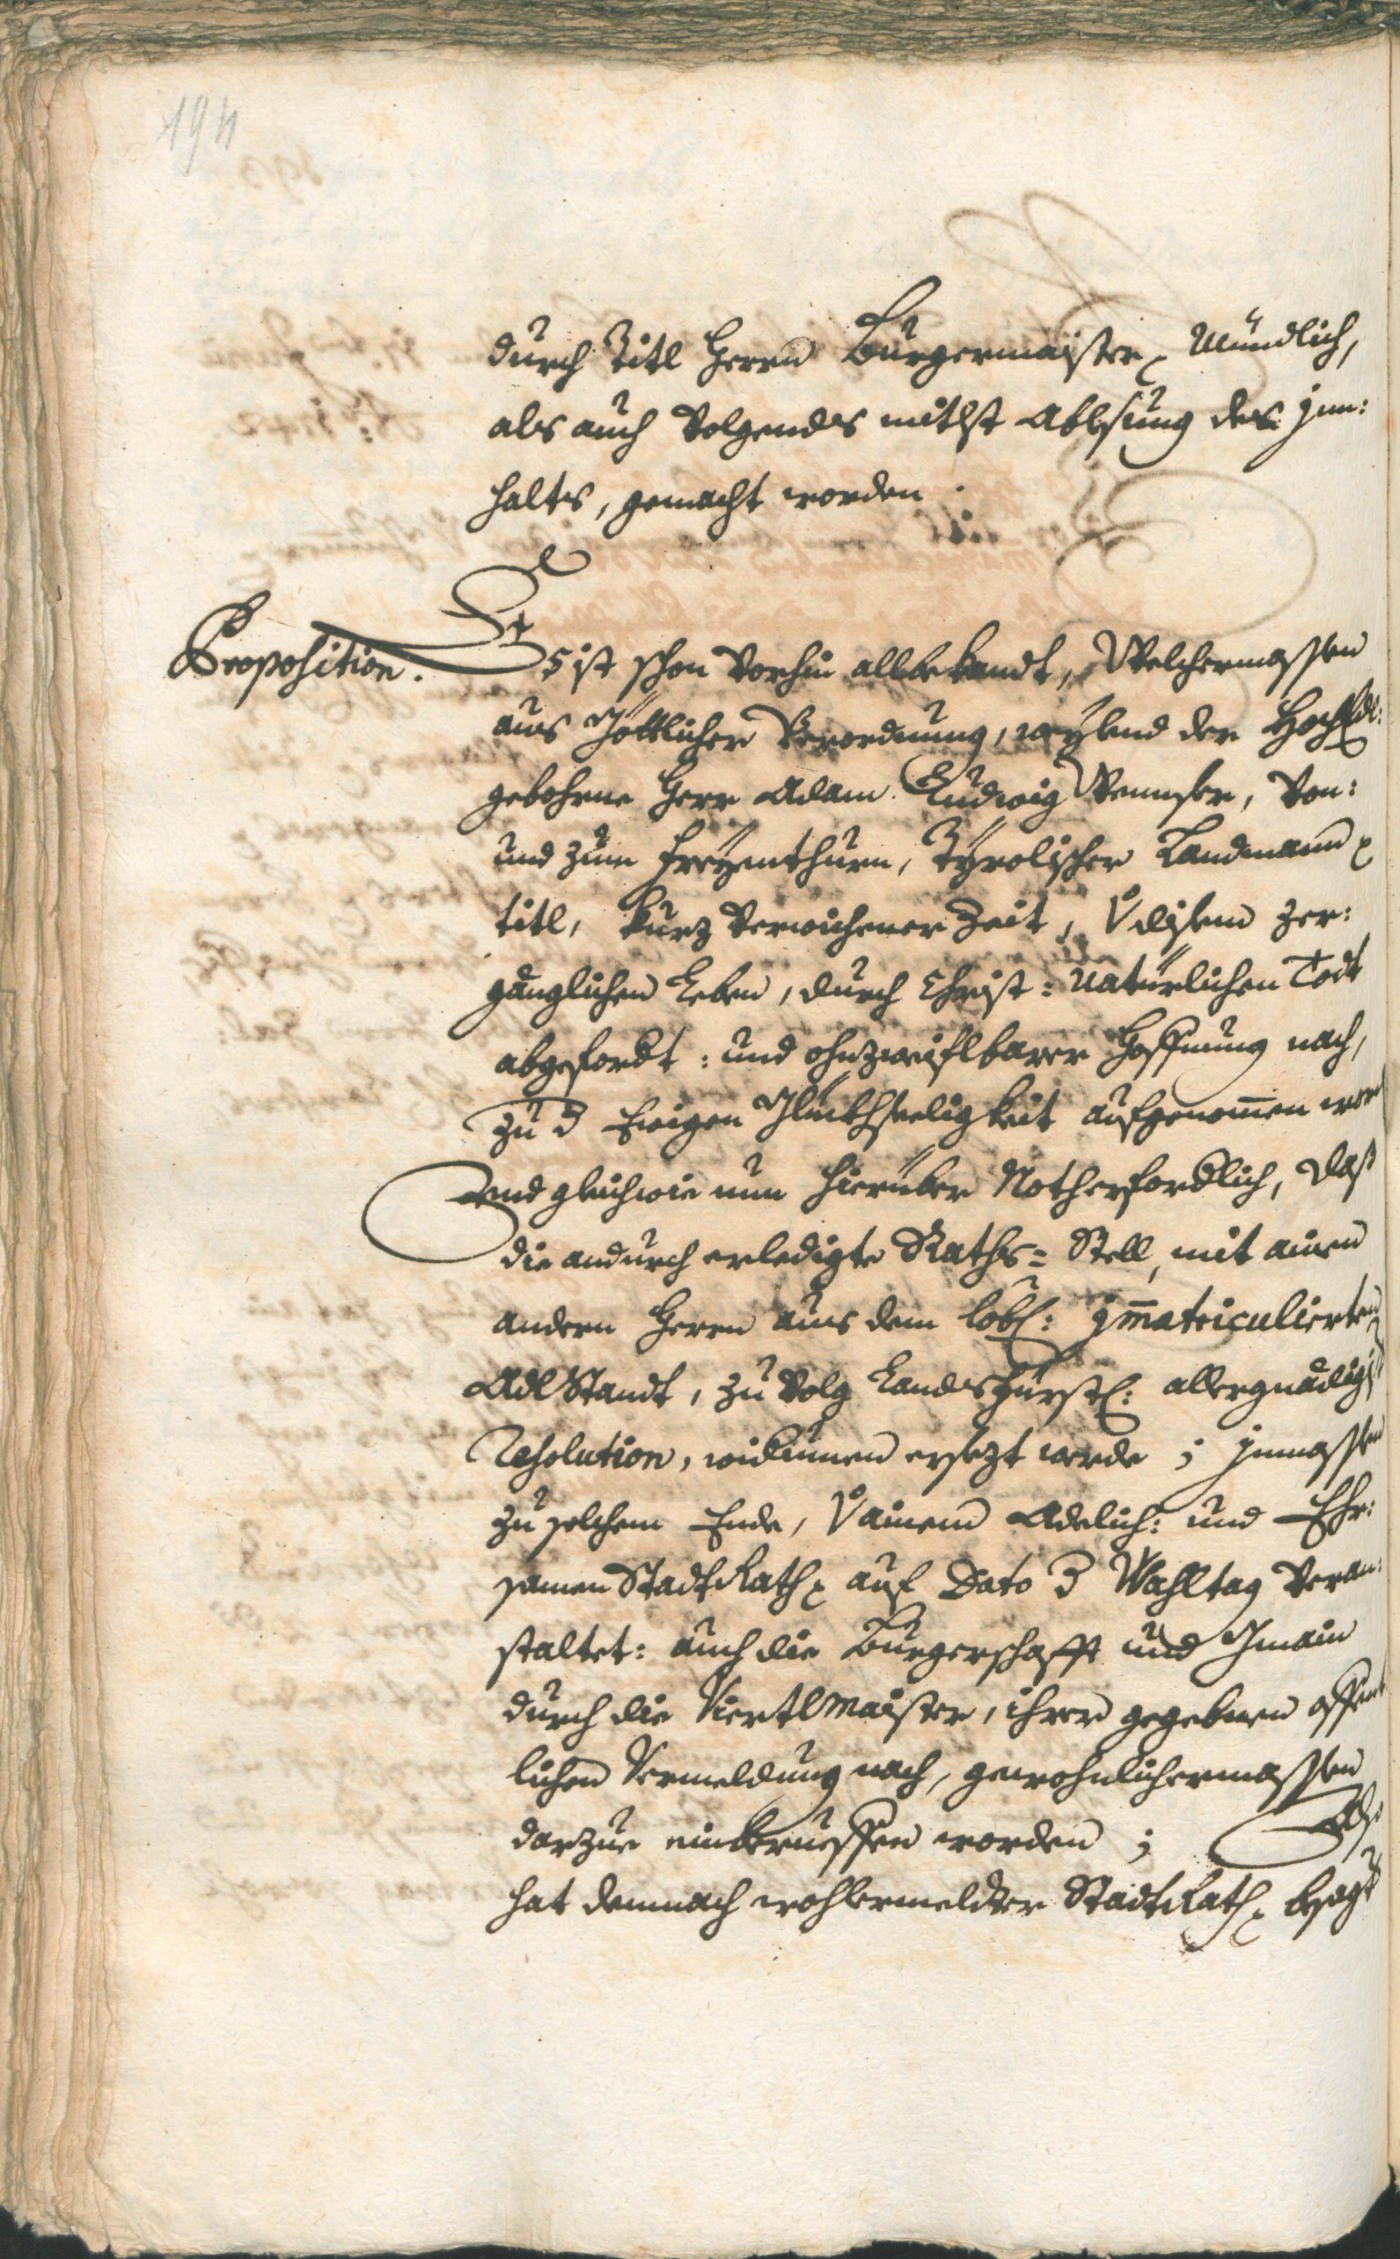 194
durch Titl Herrn Burgermaister mündlich,
als auch Volgends mitlst Ablesung des jnn:
halts, gemacht worden
Proposition: Es ist schon Vorhin allbekandt, Welchermassen
aus Göttlicher Verordnung, weylend der HochEdl:
gebohrne Herr Adam Ludwig Vennser, Von:
und zum Freyenthurn, Tyrolischer Landmann
titl, kurz verwichener Zeit, V disem zer:
gänglichen Leben, durch Christ: natürlichen Todt
abgefordt: und ohnzweiflbarer Hoffnung nach,
zu d Ewigen Glückhseeligkeit aufgenomen wor
Und gleichwie nun hierüber Notherfordlich, daß
die andurch erledigte Raths= Stell, mit ainen
andern Herrn aus dem löbl: jmatriculierten
AdlStandt, zu Volg Landsfürstl: allergnädigst
Resolution, widerumen ersezt werde; jnmassen
zu solchem Ende, V ainem Adelich: und Ehr:
samen StadtRath auf Dato d Wahltag veran:
staltet: auch die Burgerschafft und Gmain
durch die Viertlmaister, ihrer gegebnen offent
lichen Vermeldung nach, gewohnlichermassen
darzue einberueffen worden; Alß
hat demnach wohlermeldter StadtRath besagt